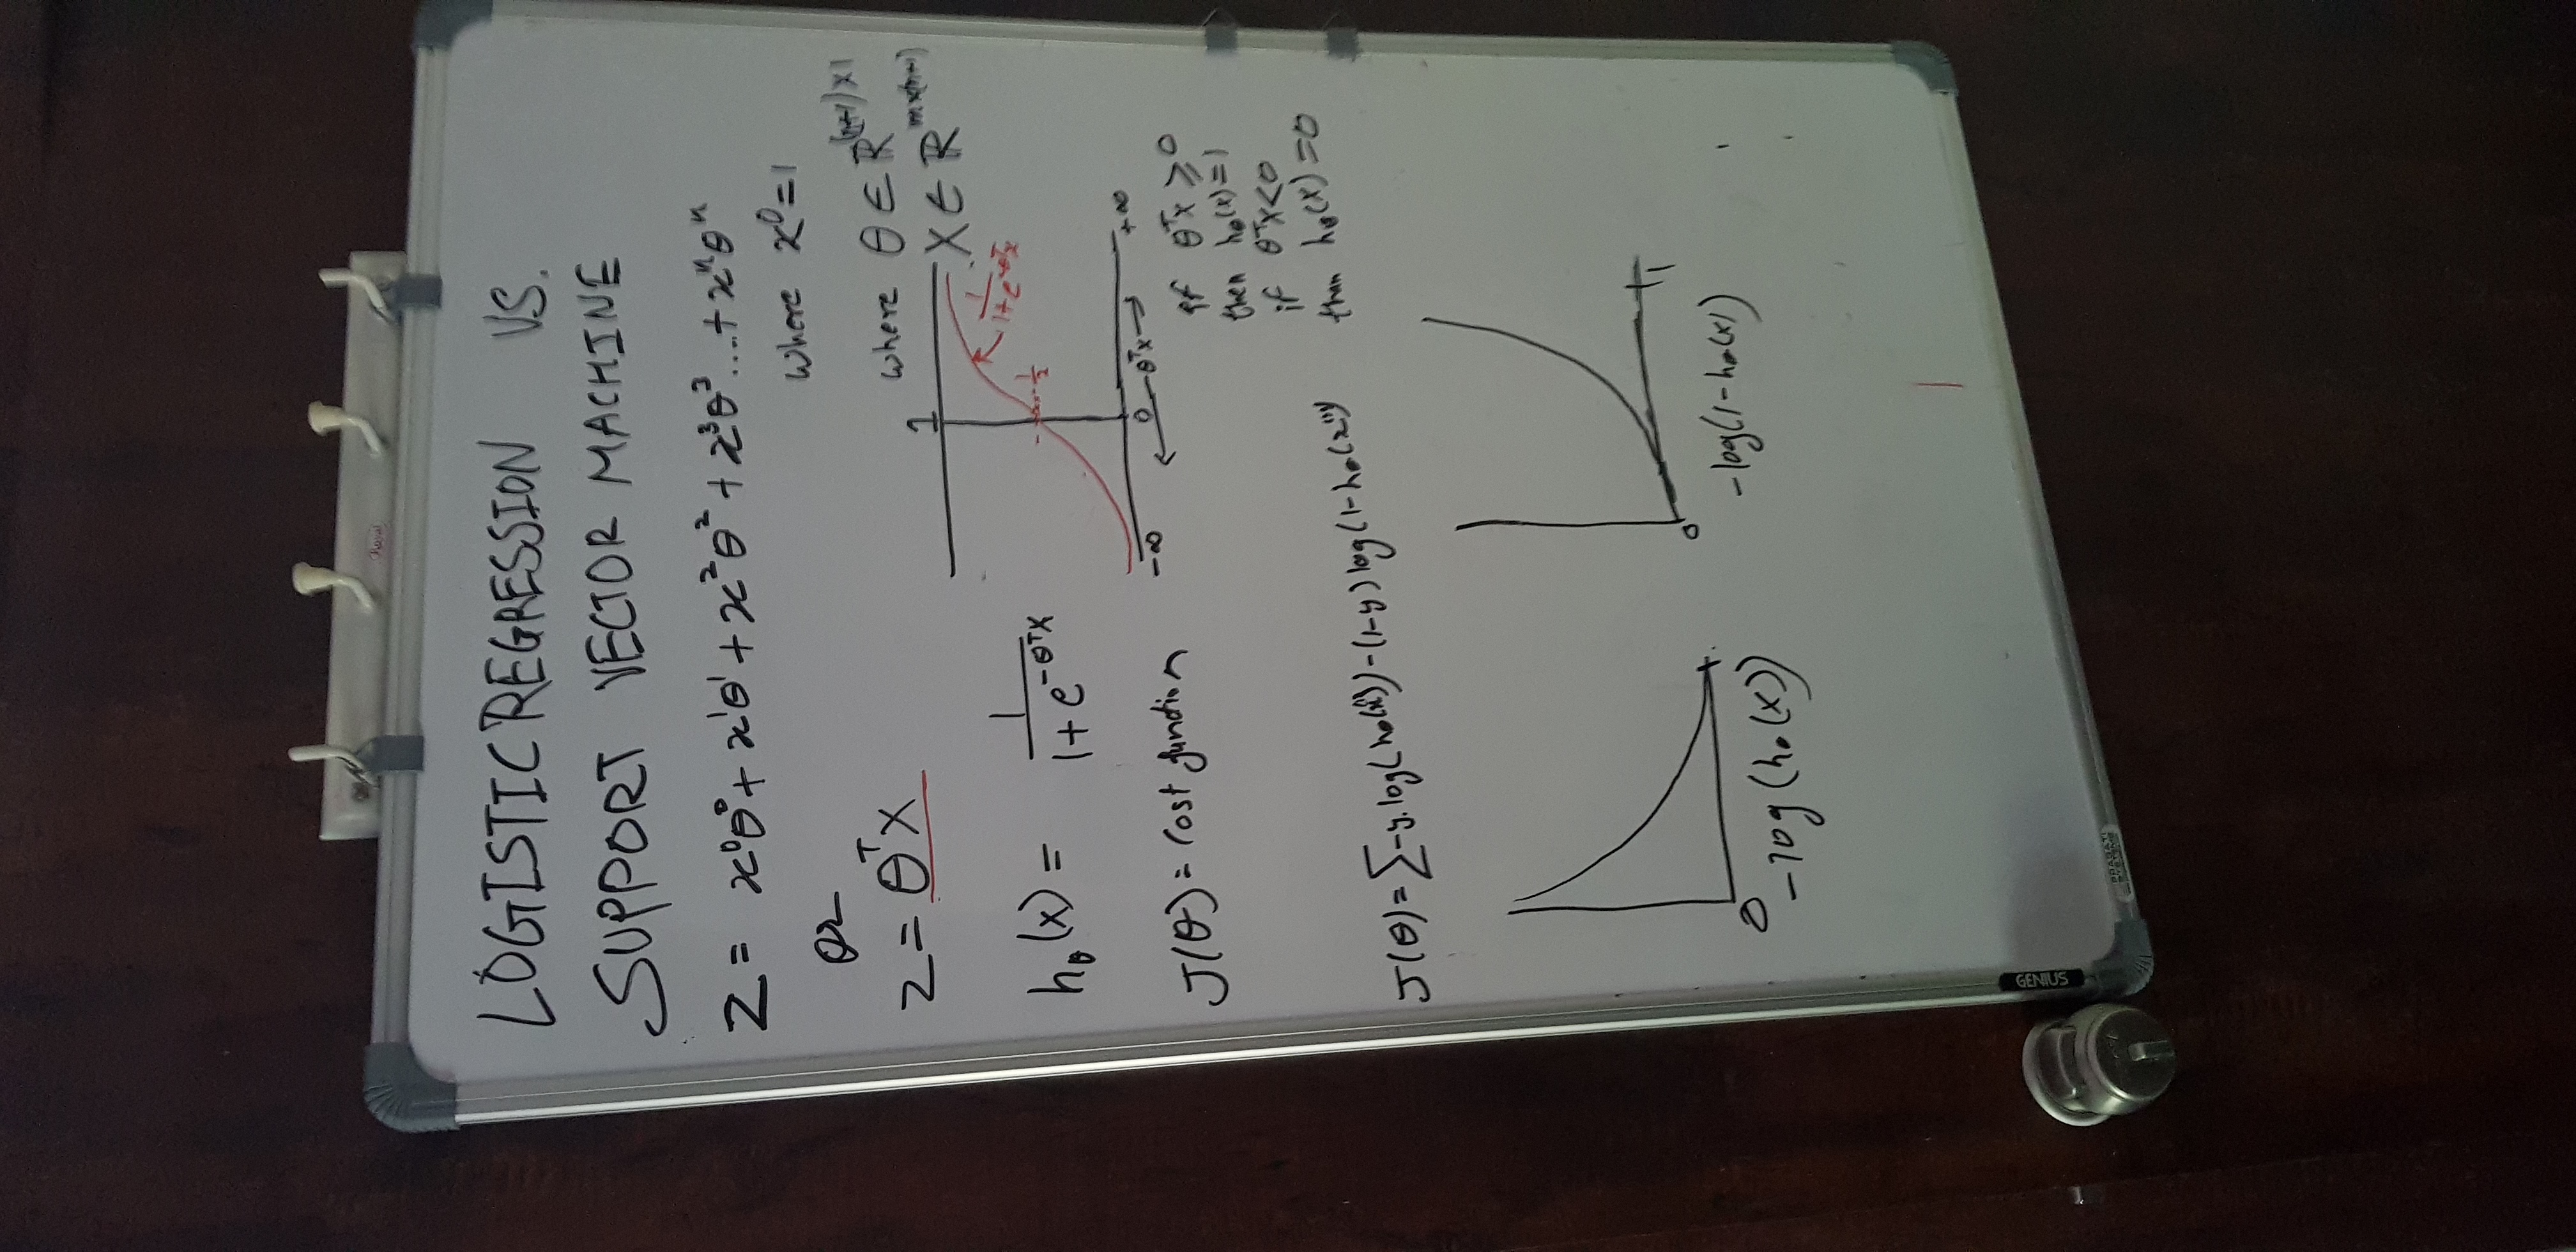 Royal
LOGISTIC REGRESSION VS.
SUPPORT VECTOR MACHINE
Z = x⁰θ⁰ + x¹θ¹ + x²θ² + x³θ³ .... + xⁿθⁿ
where x⁰ = 1
or
z = θᵀX
where θ ∈ ℝ⁽ⁿ⁺¹⁾ˣ¹
X ∈ ℝᵐˣ⁽ⁿ⁺¹⁾
1
1/(1+e^(-θᵀx))
1/2
hθ(x) = 1/(1+e^(-θᵀX))
-∞ 0 +∞
θᵀx
J(θ) = cost function
if θᵀx ≥ 0
then hθ(x) = 1
if θᵀx < 0
than hθ(x) = 0
J(θ) = Σ -y.log(hθ(x⁽ⁱ⁾)) - (1-y) log(1-hθ(x⁽ⁱ⁾)
0
0 1
-log(hθ(x))
-log(1-hθ(x))
GENIUS
PRAGATI
SYSTEMS